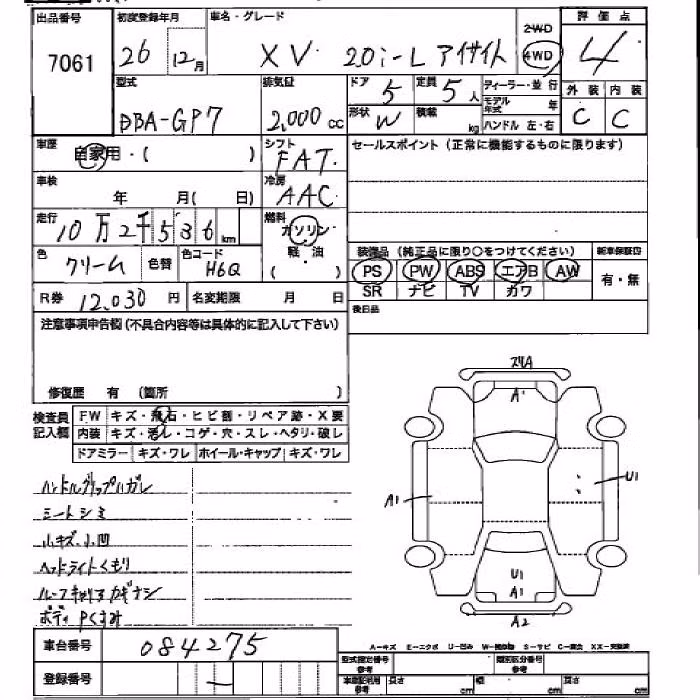 出品番号 初度登録年月 車名・グレード 2WD 評価点
7061 26 12月 XV 2.0i-L アイサイト 4WD 4
型式 排気量 ドア 定員 ディーラー・並行 外装 内装
DBA-GP7 2,000cc 5 5人 モデル年式 年 C C
形状 W 積載 kg ハンドル 左・右
車歴 自家用・( ) シフト FAT セールスポイント(正常に機能するものに限ります)
車検 年 月( 日) 冷房 AAC
走行 10万2千536km 燃料 ガソリン・軽・油( )
色 クリーム 色替 色コード H6Q 装備品(純正品に限り○をつけてください) 新車保証書
PS PW ABS エアB AW 有・無
R券 12,030円 名変期限 月 日 SR ナビ TV カワ
注意事項申告欄(不具合内容等は具体的に記入して下さい) 後日品
修復歴 有 (箇所 )
検査員記入欄 FW キズ・飛石・ヒビ割・リペア跡・X要
内装 キズ・汚レ・コゲ・穴・スレ・ヘタリ・破レ
ドアミラー キズ・ワレ ホイール・キャップ キズ・ワレ
A1
ハンドルグリップハガレ
U1
A1
シートシミ
小キズ、小凹
ヘッドライトくもり
U1
A1
ボディ Pくすみ
A2
車台番号 084275
A-キズ E-エクボ U-凹み S-サビ C-腐食 XX-交換済
登録番号 型式指定番号 参考 類別区分番号 参考
長さ cm 幅 cm 高さ cm